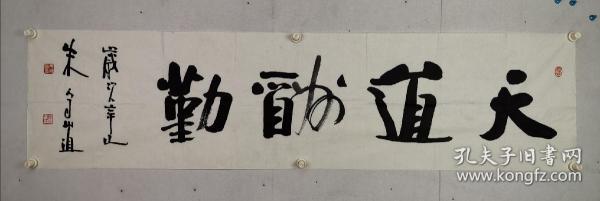 天道酬勤
岁次辛丑
朱守道
孔夫子旧书网
www.kongfz.com